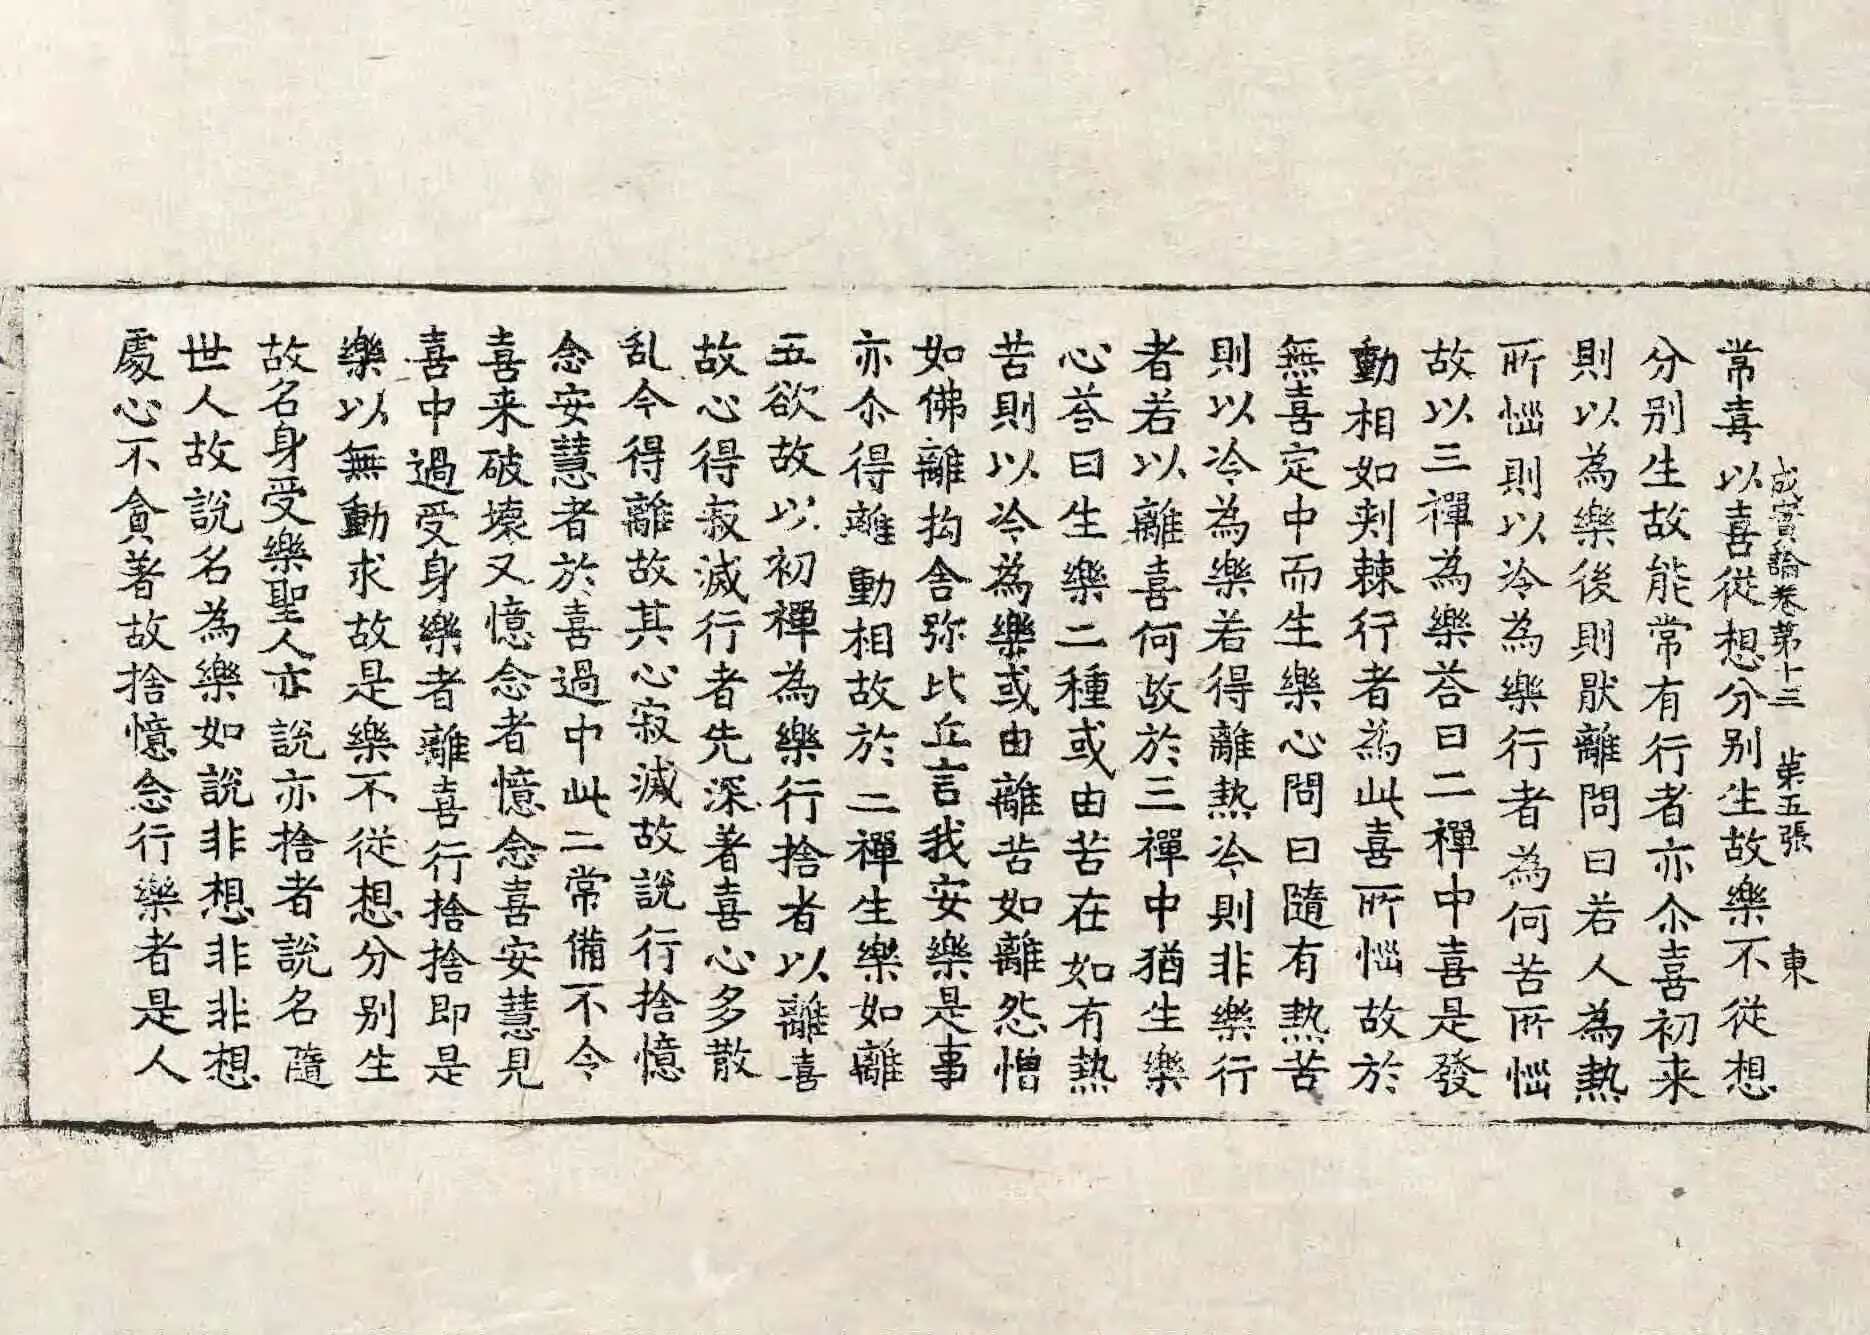 成實論卷第十三 第五張 東
常喜以喜從想分別生故樂不從想
分別生故能常有行者亦尒喜初来
則以為樂後則猒離問曰若人為熱
所惱則以冷為樂行者為何苦所惱
故以三禪為樂荅曰二禪中喜是發
動相如刾棘行者為此喜所惱故於
無喜定中而生樂心問曰隨有熱苦
則以冷為樂若得離熱冷則非樂行
者若以離喜何故於三禪中猶生樂
心荅曰生樂二種或由苦在如有熱
苦則以冷為樂或由離苦如離怨憎
如佛離拘舍弥比丘言我安樂是事
亦尒得離動相故於二禪生樂如離
五欲故以初禪為樂行捨者以離喜
故心得寂滅行者先深著喜心多散
乱今得離故其心寂滅故說行捨憶
念安慧者於喜過中此二常備不令
喜来破壞又憶念者憶念喜安慧見
喜中過受身樂者離喜行捨捨即是
樂以無動求故是樂不從想分別生
故名身受樂聖人亦說亦捨者說名隨
世人故說名為樂如說非想非非想
處心不貪著故捨憶念行樂者是人